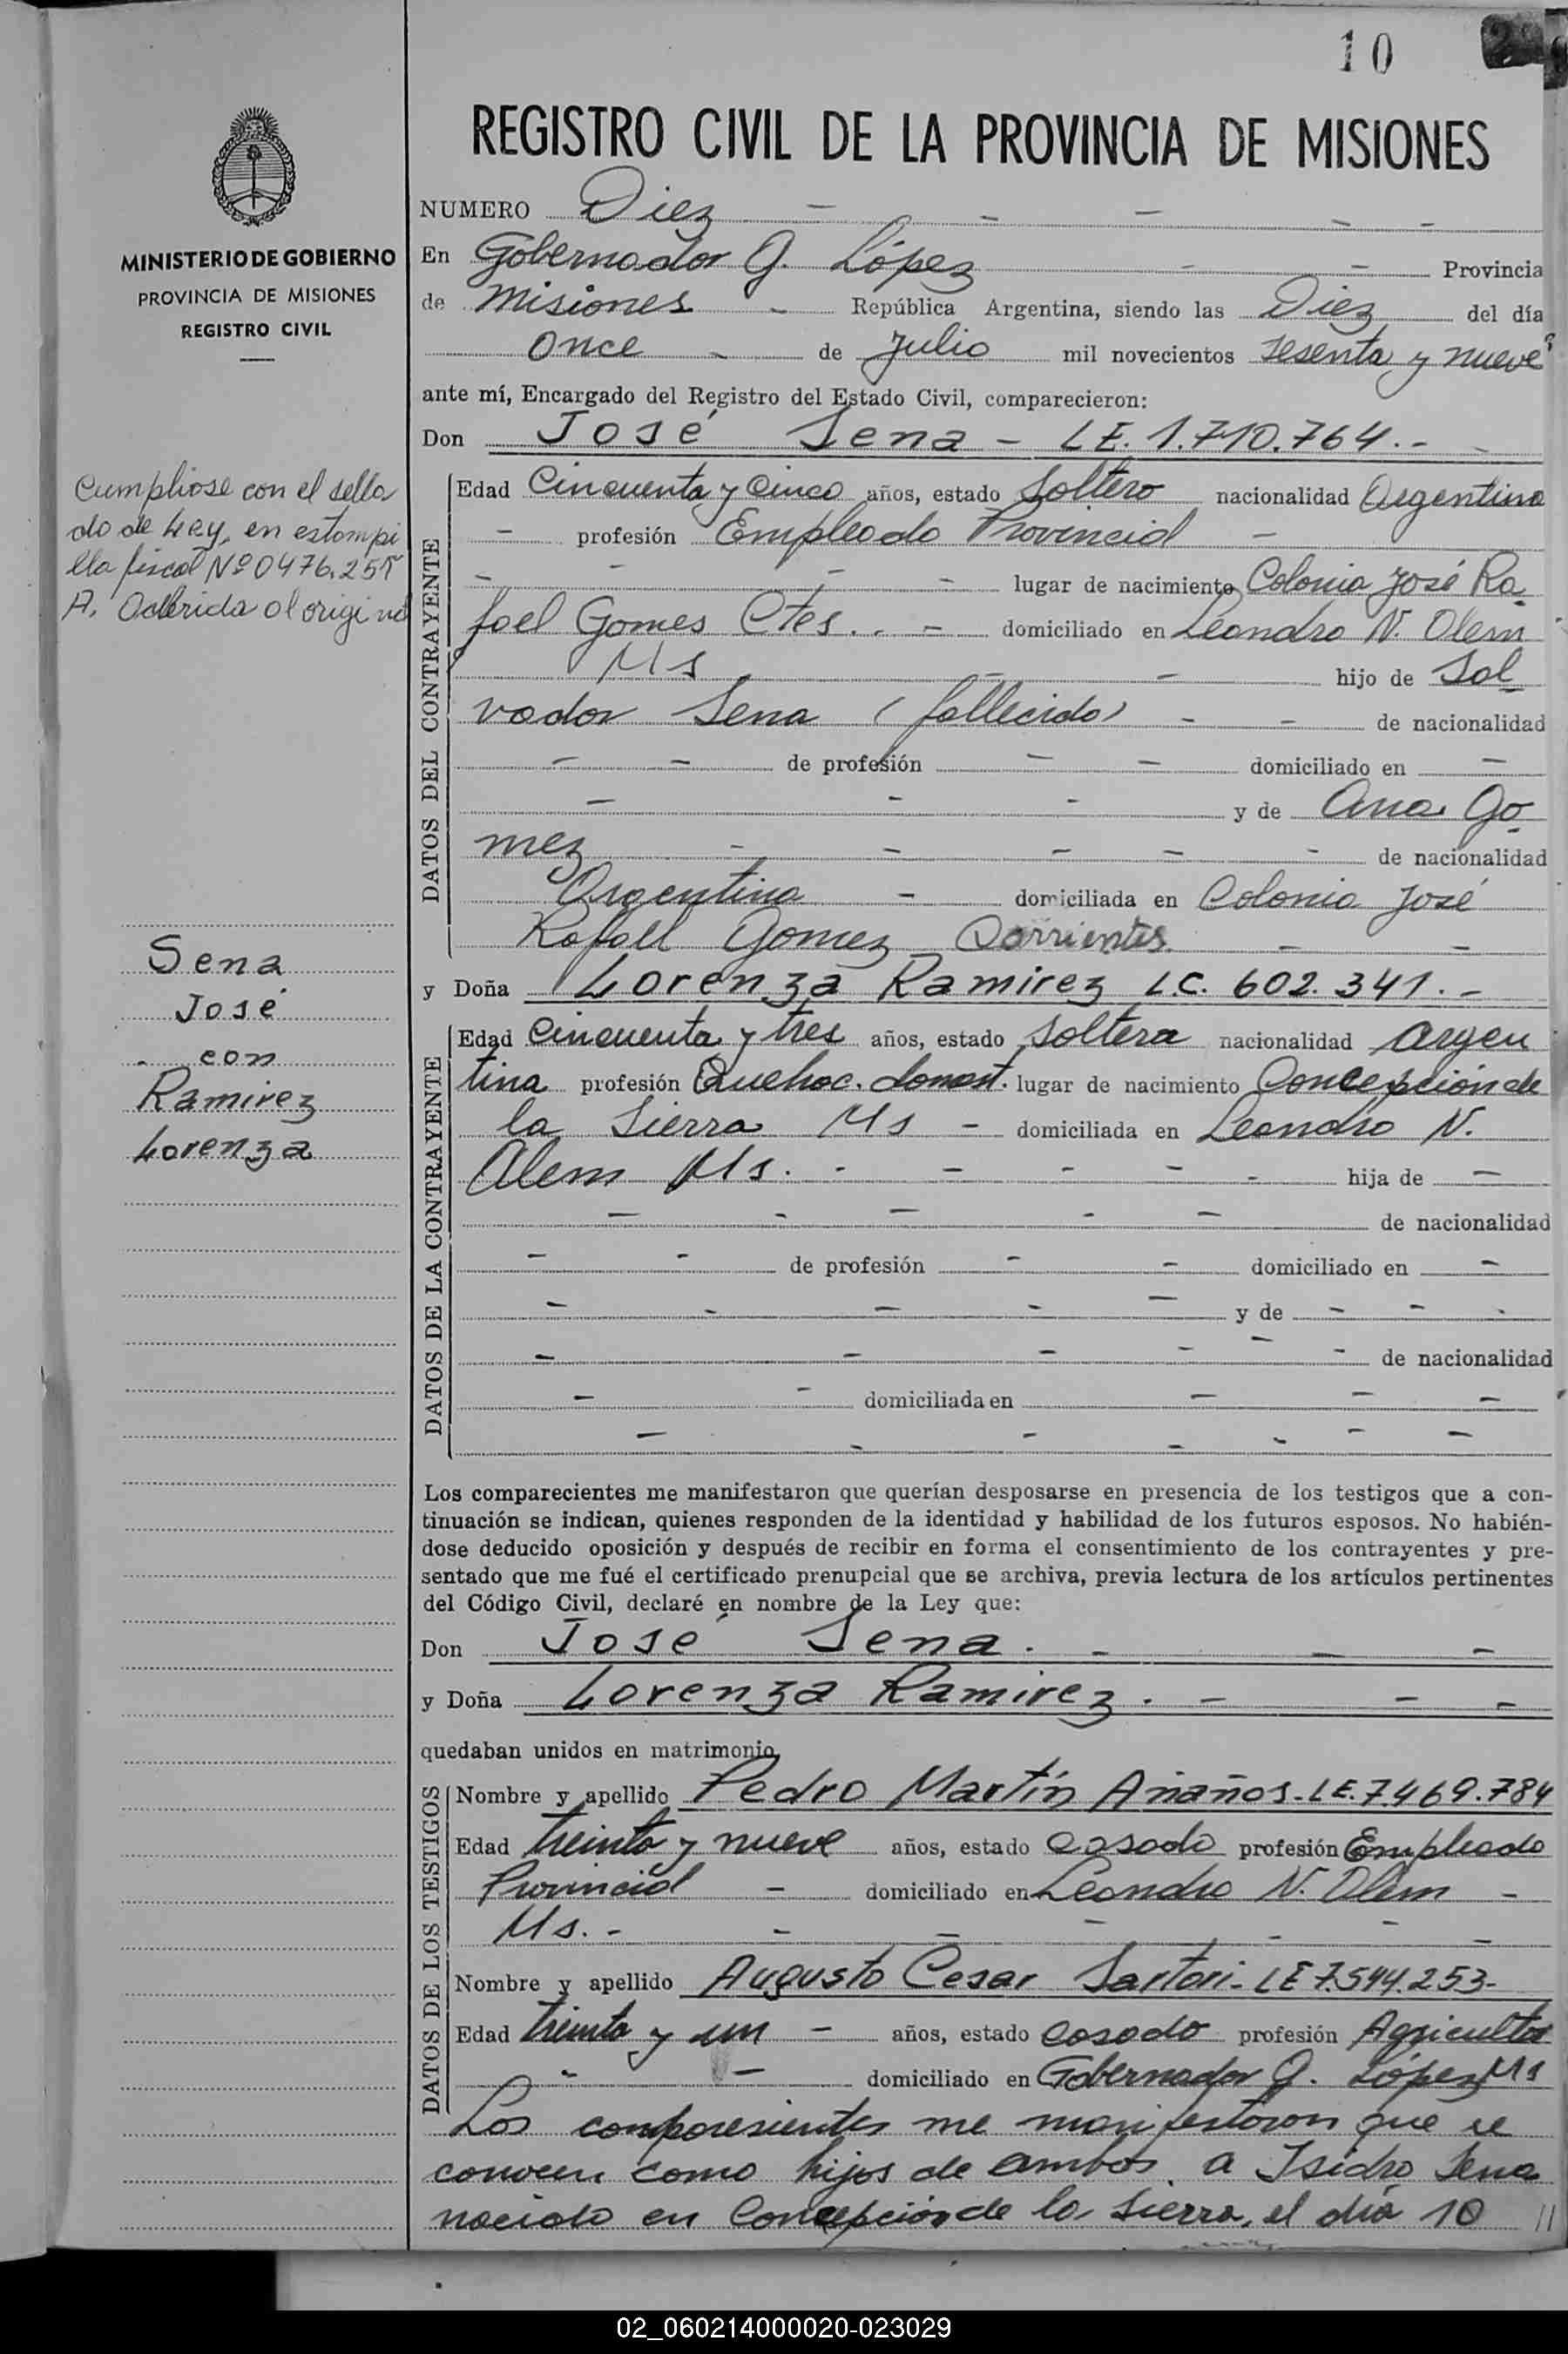 10
REGISTRO CIVIL DE LA PROVINCIA DE MISIONES
MINISTERIO DE GOBIERNO
PROVINCIA DE MISIONES
REGISTRO CIVIL
NUMERO Diez - - - - -
En Gobernador J. López - - Provincia
de Misiones - República Argentina, siendo las Diez del día
Once - de Julio mil novecientos sesenta y nueve
ante mí, Encargado del Registro del Estado Civil, comparecieron:
Don José Sena - L E. 1.710.764.- -
Cumpliose con el sella
do de Ley, en estampi
lla fiscal Nº 0476.251
A. Adherida al original
DATOS DEL CONTRAYENTE
Edad Cincuenta y Cinco años, estado Soltero nacionalidad Argentina
- profesión Empleado Provincial -
- - - - lugar de nacimiento Colonia José Ra
fael Gomes Ctes.. - domiciliado en Leandro N. Alem
Ms - - hijo de Sal
vador Sena (fallecido) - - de nacionalidad
- - de profesión - - domiciliado en -
- - - y de Ana Go
mez - - - - - de nacionalidad
Argentina - domiciliada en Colonia José
Rafael Gomez Corrientes. - -
y Doña Lorenza Ramirez L.C. 602.341.-
Sena
José
con
Ramirez
Lorenza
DATOS DE LA CONTRAYENTE
Edad Cincuenta y tres años, estado Soltera nacionalidad argen
tina profesión Quehac. domest. lugar de nacimiento Concepción de
la Sierra Ms - domiciliada en Leandro N.
Alem Ms. - - - - - hija de -
- - - - - de nacionalidad
- - de profesión - - domiciliado en -
- - - - - y de - - -
- - - - - - de nacionalidad
- - domiciliada en - - -
- - - - - - -
Los comparecientes me manifestaron que querían desposarse en presencia de los testigos que a con-
tinuación se indican, quienes responden de la identidad y habilidad de los futuros esposos. No habién-
dose deducido oposición y después de recibir en forma el consentimiento de los contrayentes y pre-
sentado que me fué el certificado prenupcial que se archiva, previa lectura de los artículos pertinentes
del Código Civil, declaré en nombre de la Ley que:
Don José Sena. - - -
y Doña Lorenza Ramirez. - - -
quedaban unidos en matrimonio
DATOS DE LOS TESTIGOS
Nombre y apellido Pedro Martín Añaños-L E. 7.469.784
Edad treinta y nueve años, estado casado profesión Empleado
Provincial - domiciliado en Leandro N. Alem -
Ms.- - - - - - -
Nombre y apellido Augusto Cesar Sartori-L E 7.544.253-
Edad treinta y un - años, estado casado profesión Agricultor
- - domiciliado en Gobernador J. López Ms
Los comparesientes me manifestaron que re
conocen como hijos de ambos. a Isidro Sena
nacido en Concepción de la Sierra, el día 10 //
02_060214000020-023029